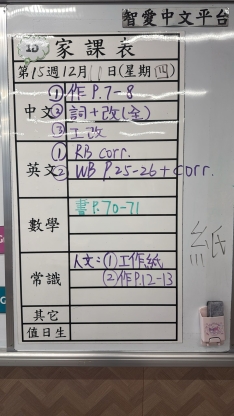 智愛中文平台
1D 家課表
第15週12月11日(星期四)
中文 ① 作 P.7-8
② 詞+改(全)
③ 工改
英文 ① RB corr.
② WB P.25-26 + corr.
數學 書 P.70-71
常識 人文:(1)工作紙
(2)作 P.12-13
其它
值日生
紙